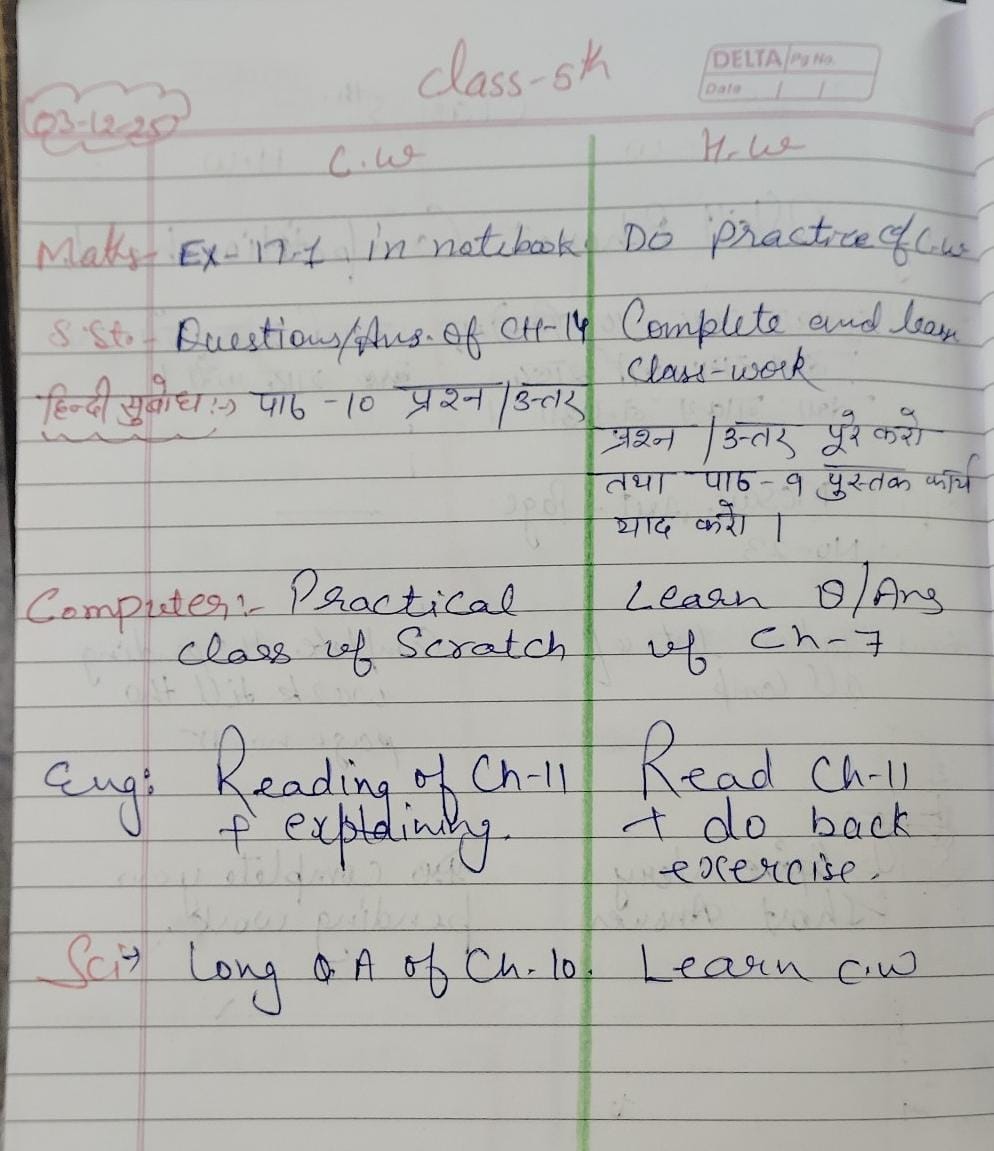 Class-5th
DELTA Pg No.
Date / /
03-12-25
C.W H.W
Maths- Ex-17.1 in notebook. Do practice of C.W
S.St.- Questions/Ans. of CH-14 Complete and learn
Class-work
हिन्दी सुबोध :-> पाठ -10 प्रश्न / उत्तर
प्रश्न / उत्तर पूरे करो
तथा पाठ-9 पुस्तक कार्य
याद करो ।
Computer:- Practical Learn Q/Ans
class of Scratch of Ch-7
Eng: Reading of Ch-11 Read Ch-11
+ explaining. + do back
exercise.
Sci-> Long Q A of Ch. 10. Learn C.W